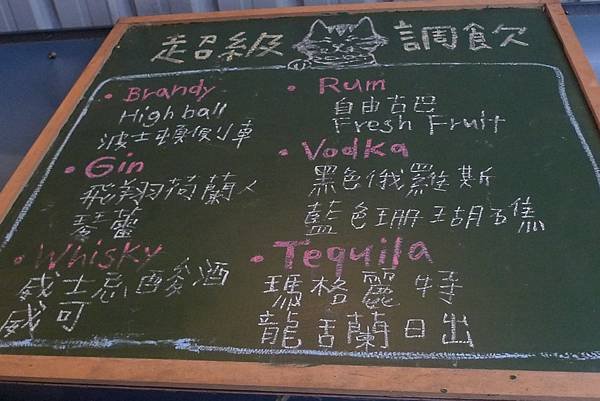 超級 調飲
Brandy
High ball
波士頓便車
Gin
飛翔荷蘭人
琴蕾
Whisky
威士忌酸酒
威可
Rum
自由古巴
Fresh Fruit
Vodka
黑色俄羅斯
藍色珊瑚礁
Tequila
瑪格麗特
龍舌蘭日出